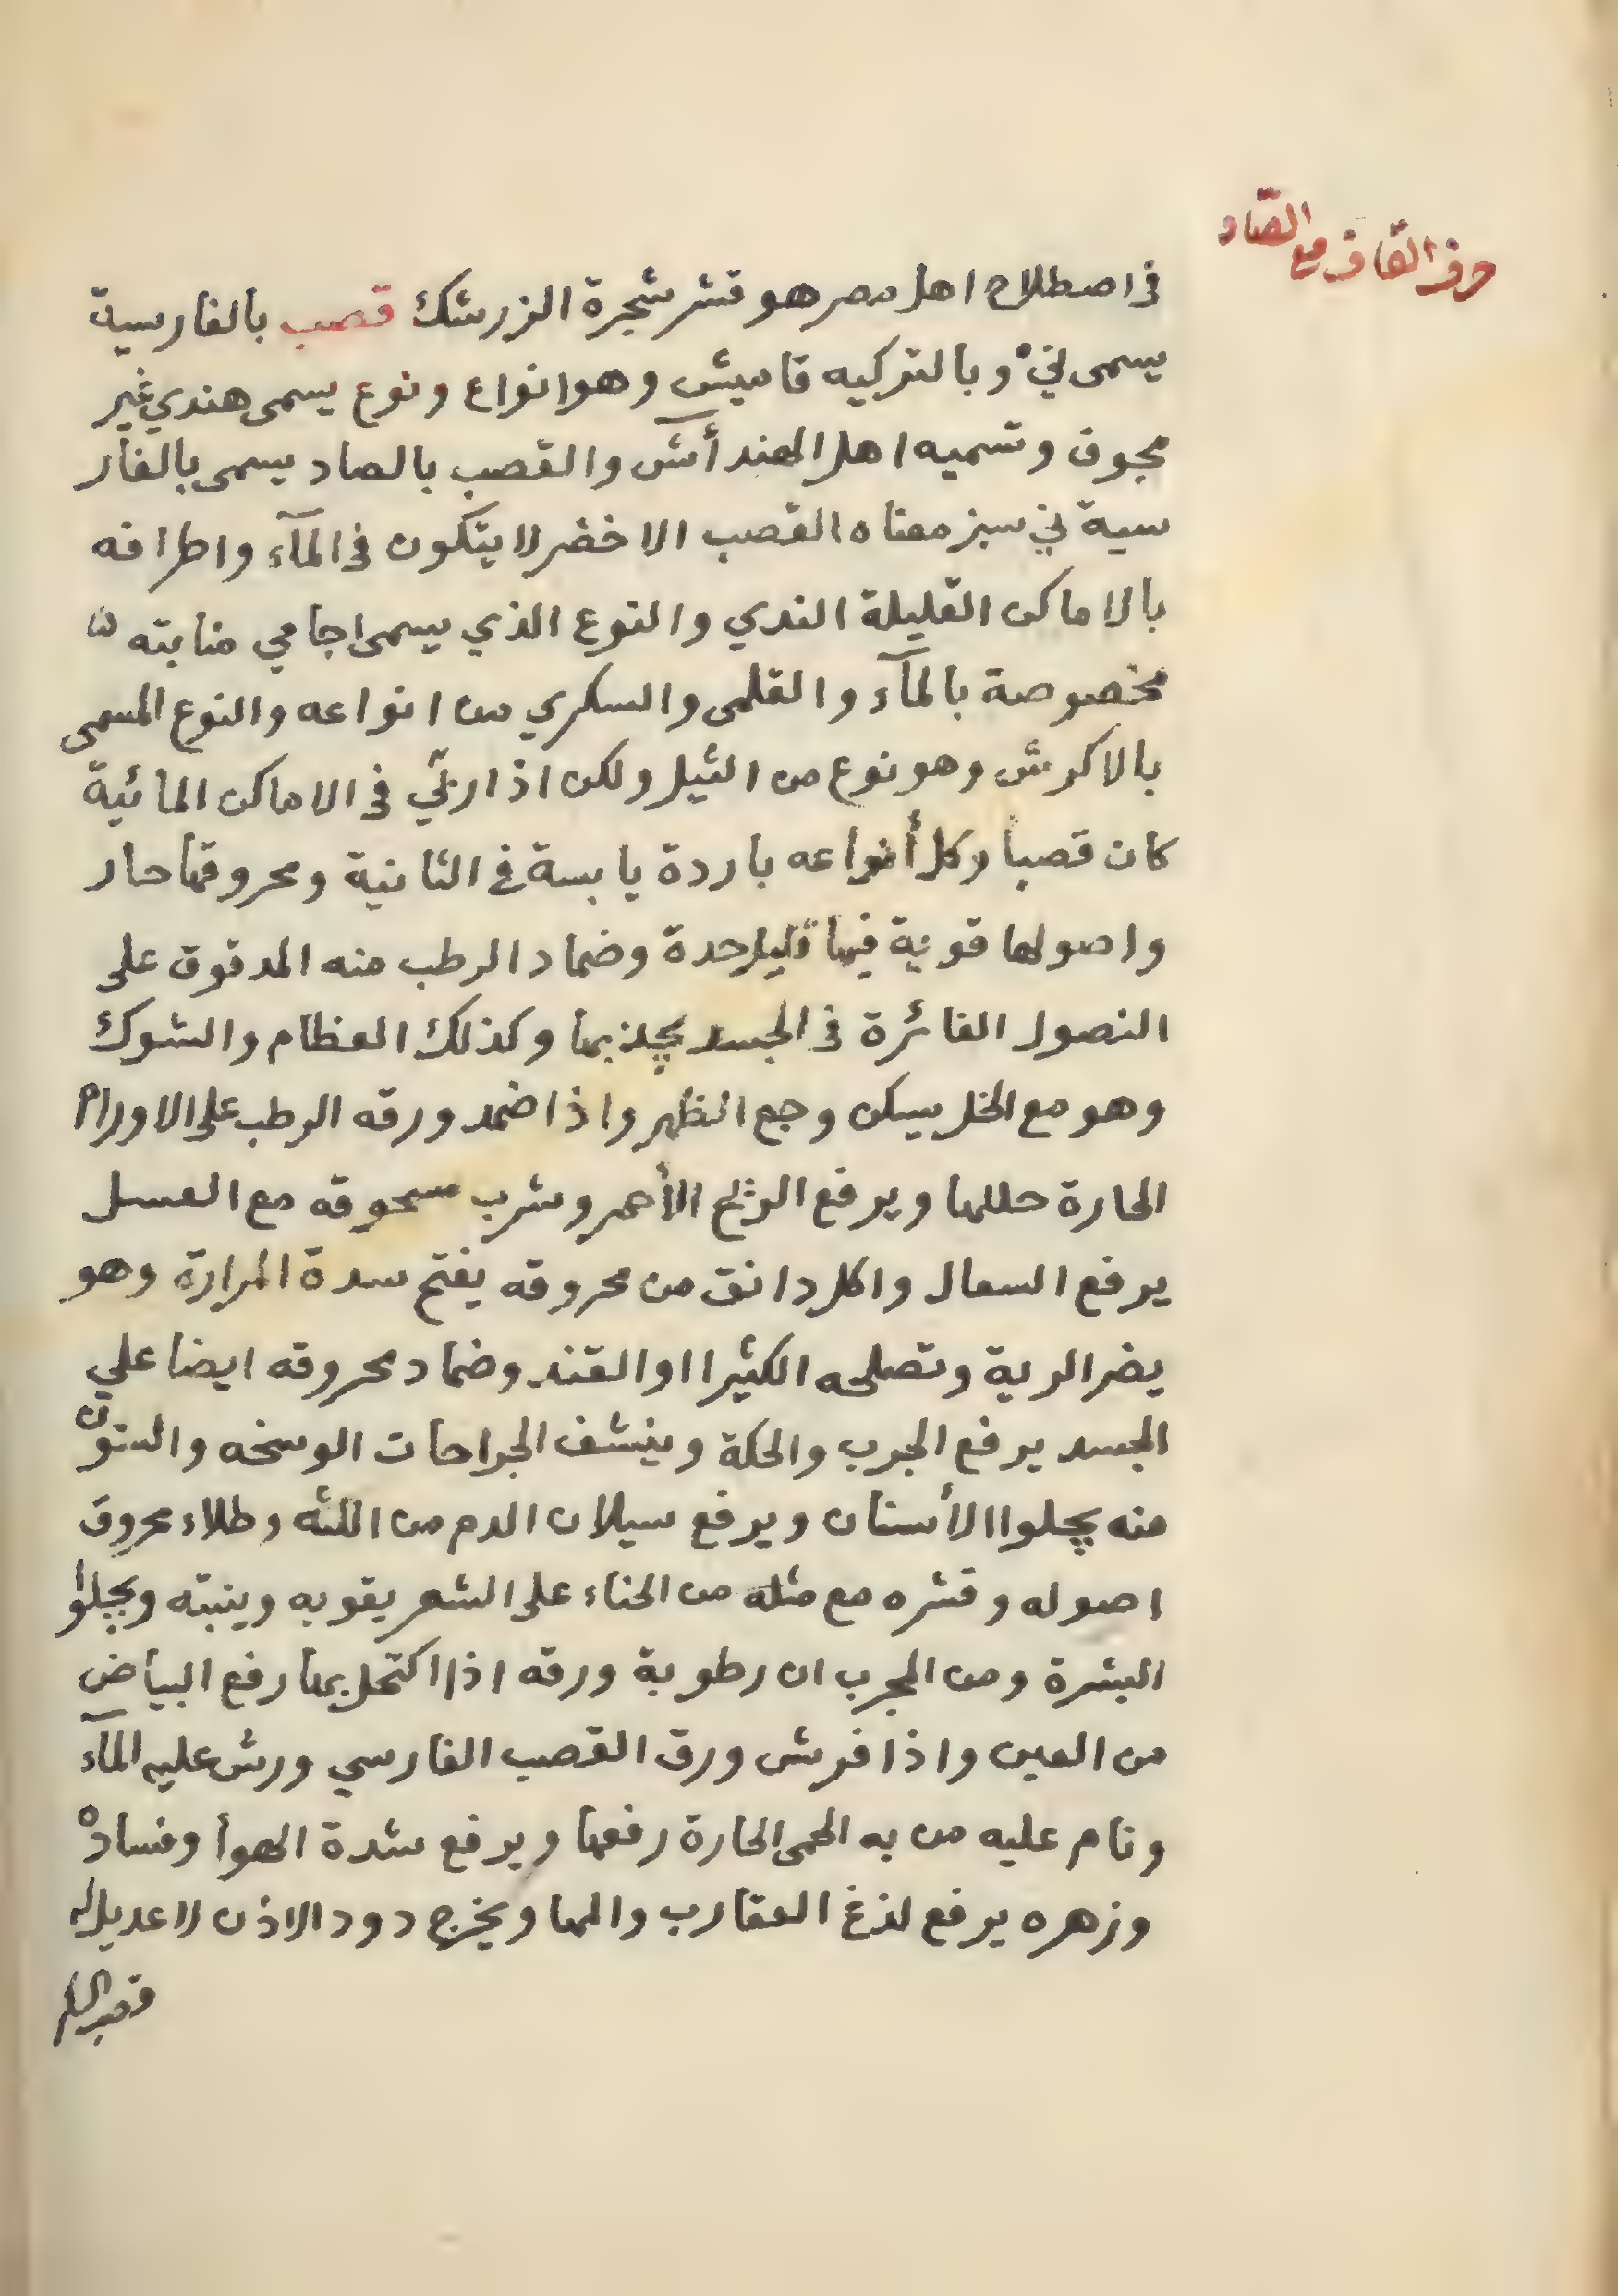 حرف القاف مع الصاد
في اصطلاح اهل مصر هو قشر شجرة الزرشك قصب بالفارسية
يسمى ني وبالتركيه قاميش وهو انواع ونوع يسمى هندي غير
مجوف وتسميه اهل الهند أتش والقصب بالصاد يسمى بالفار
سية ني سبز معناه القصب الاخضر لا يتكون في المآء واطرافه
بالاماكن القليلة الندي والنوع الذي يسمى اجامي منابته
مخصوصة بالمآء والقلمى والسكري من انواعه والنوع المسمى
بالاكرش وهو نوع من الثيل ولكن اذا ربّي في الاماكن المائية
كان قصبا وكل أنواعه باردة يابسة في الثانية ومحروقها حار
واصولها قوية فيها قليل حدة وضماد الرطب منه المدقوق على
النصول الغائرة في الجسد يجذبها وكذلك العظام والشوك
وهو مع الخل يسكن وجع الظهر واذا ضمد ورقه الرطب على الاورام
الحارة حللها ويرفع الريح الأحمر وشرب مسحوقه مع العسل
يرفع السعال واكل دانق من محروقه يفتح سدة المرارة وهو
يضر الرية وتصلحه الكثيرا او القند وضماد محروقه ايضا علي
الجسد يرفع الجرب والحكة وينشف الجراحات الوسخه والسنون
منه يجلوا الأسنان ويرفع سيلان الدم من اللثه وطلاء محروق
اصوله وقشره مع مثله من الحناء على الشعر يقويه وينبته ويجلوا
البشرة ومن المجرب ان رطوبة ورقه اذا اكتحل بها رفع البياض
من العين واذا فرش ورق القصب الفارسي ورش عليه المآء
ونام عليه من به الحمى الحارة رفعها ويرفع شدة الهوأ وفساده
وزهره يرفع لذغ العقارب والمها ويخرج دود الاذن لا عديل له
قصب السكر